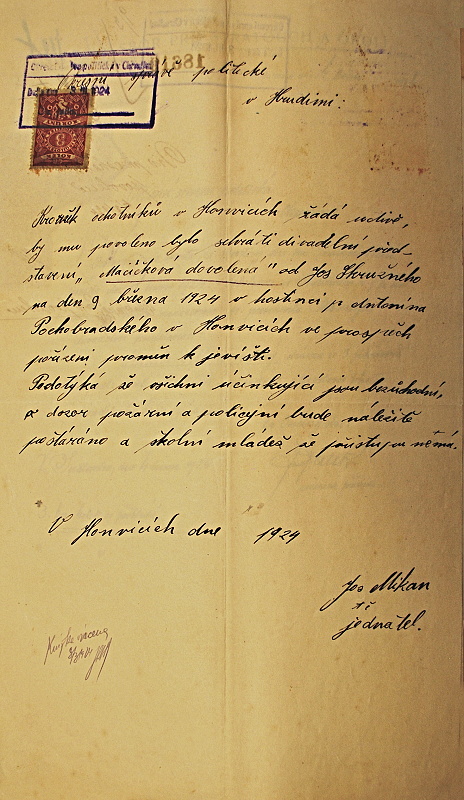 správě politické
v Hrudimi:
1924
Kroužek ochotníků v Honvicích žádá uctivě,
by mu povoleno bylo sehráti divadelní před-
stavení „Matčičková dovolená" od Jos Skružného
na den 9 března 1924 v hostinci p Antonína
Pochobradského v Honvicích ve prospěch
pořízení proměn k jevišti.
Podotýká že všichni účinkující jsou bezúhonní,
a dozor požární a policejní bude náležitě
postaráno a školní mládež že přístupu nemá.
V Honvicích dne 1924
Jos Mikan
jednatel.